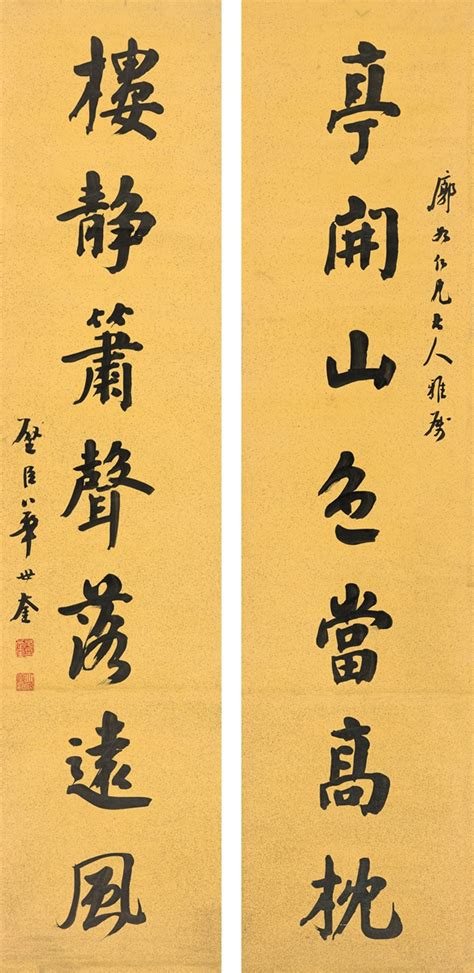 亭開山色當高枕
廓如仁兄大人雅屬
樓静簫聲落遠風
璧臣華世奎